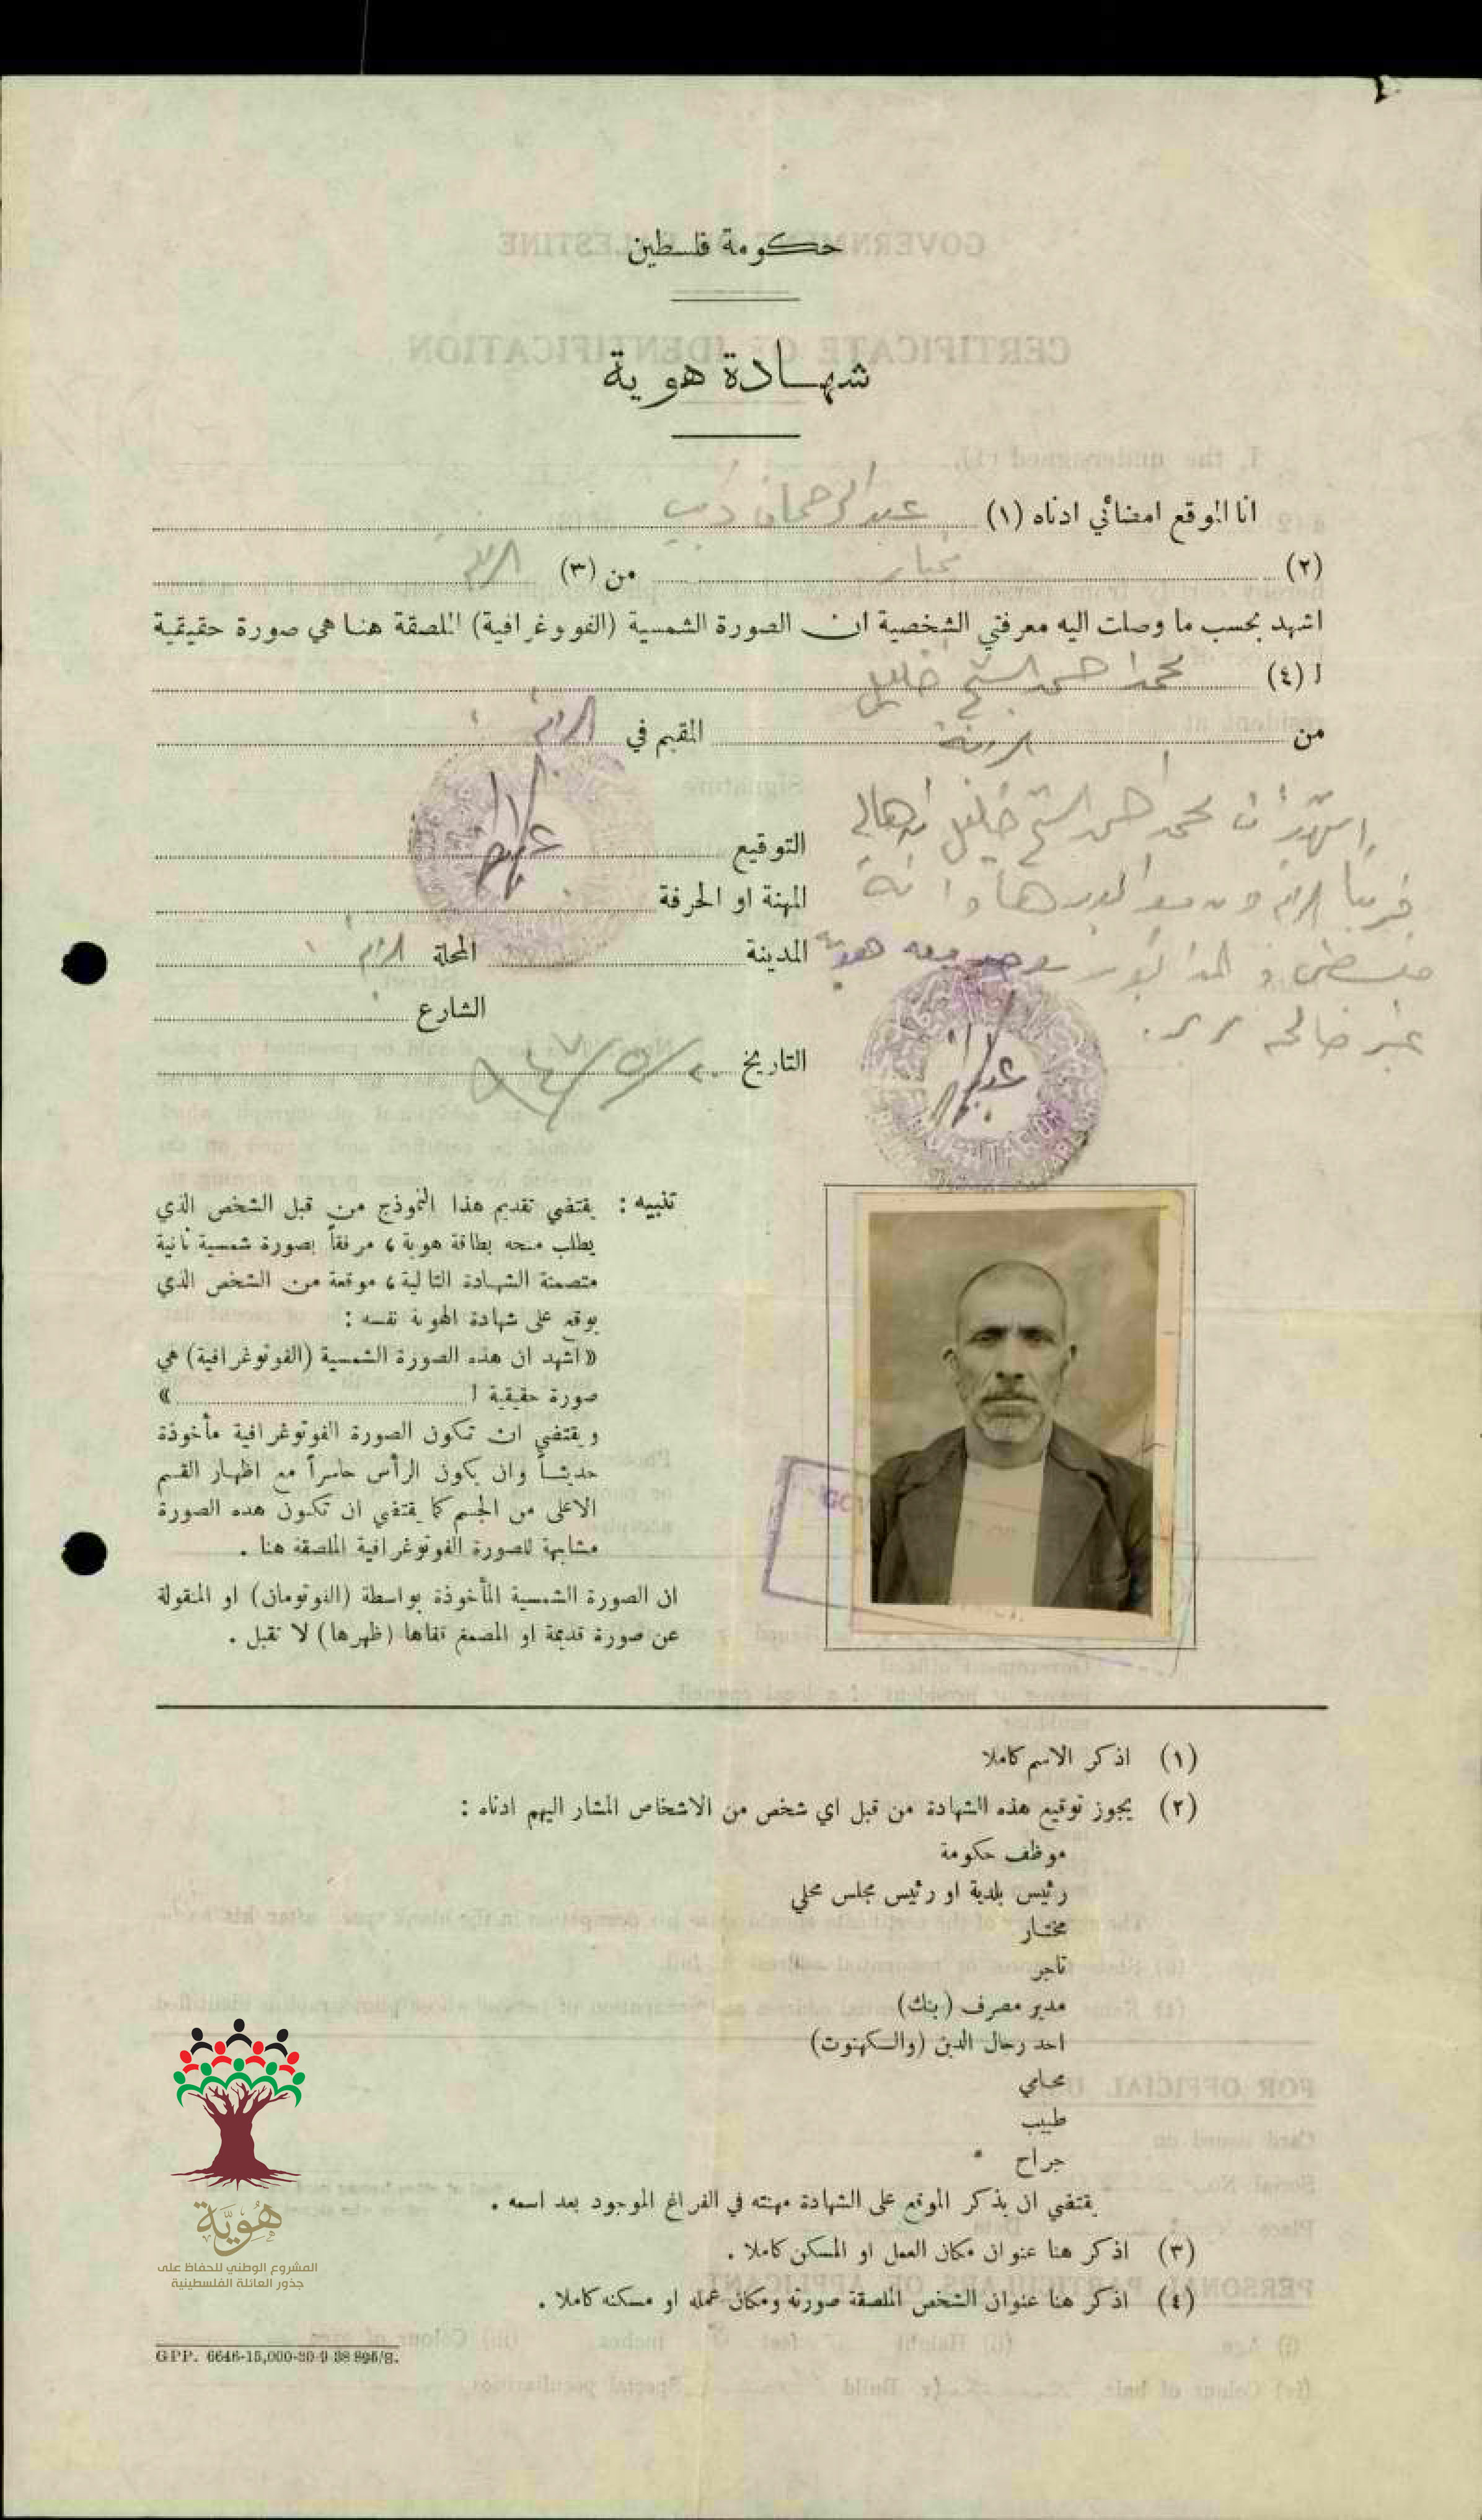 حكومة فلسطين
شهادة هوية
انا الموقع امضائي ادناه (١) عبد الرحمان ذيب
(٢) مختار من (٣) الرام
اشهد بحسب ما وصلت اليه معرفتي الشخصية ان الصورة الشمسية (الفووغرافية) الملصقة هنا هي صورة حقيقية
ا (٤) محمد احمد الشيخ خليل
من المقيم في الرام
اشهد ان محمد احمد الشيخ خليل اهالي
الرام وانه
معه هويه
غير صالحه
التوقيع
المهنة او الحرفة
المدينة المحلة الرام
الشارع
التاريخ ٢٠/٥/٩٤٧
تنبيه : يقتضي تقديم هذا النموذج من قبل الشخص الذي
يطلب منحه بطاقة هوية ، مرفقاً بصورة شمسية ثانية
متضمنة الشهادة التالية ، موقعة من الشخص الذي
يوقع على شهادة الهوية نفسه :
« اشهد ان هذه الصورة الشمسية (الفوتوغرافية) هي
صورة حقيقية ا »
ويقتضي ان تكون الصورة الفوتوغرافية مأخوذة
حديثاً وان يكون الرأس حاسراً مع اظهار القسم
الاعلى من الجسم كما يقتضي ان تكون هذه الصورة
مشابهة للصورة الفوتوغرافية الملصقة هنا .
ان الصورة الشمسية المأخوذة بواسطة (الفوتومان) او المنقولة
عن صورة قديمة او المصمغ قفاها (ظهرها) لا تقبل .
(١) اذكر الاسم كاملا
(٢) يجوز توقيع هذه الشهادة من قبل اي شخص من الاشخاص المشار اليهم ادناه :
موظف حكومة
رئيس بلدية او رئيس مجلس محلي
مختار
تاجر
مدير مصرف (بنك)
احد رجال الدين (والكهنوت)
محامي
طبيب
جراح
يقتضي ان يذكر الموقع على الشهادة مهنته في الفراغ الموجود بعد اسمه .
(٣) اذكر هنا عنوان مكان العمل او المسكن كاملا .
(٤) اذكر هنا عنوان الشخص الملصقة صورته ومكان عمله او مسكنه كاملا .
هُوِيَّة
المشروع الوطني للحفاظ على
جذور العائلة الفلسطينية
GPP. 6646-15,000-20-9-38 895/g.